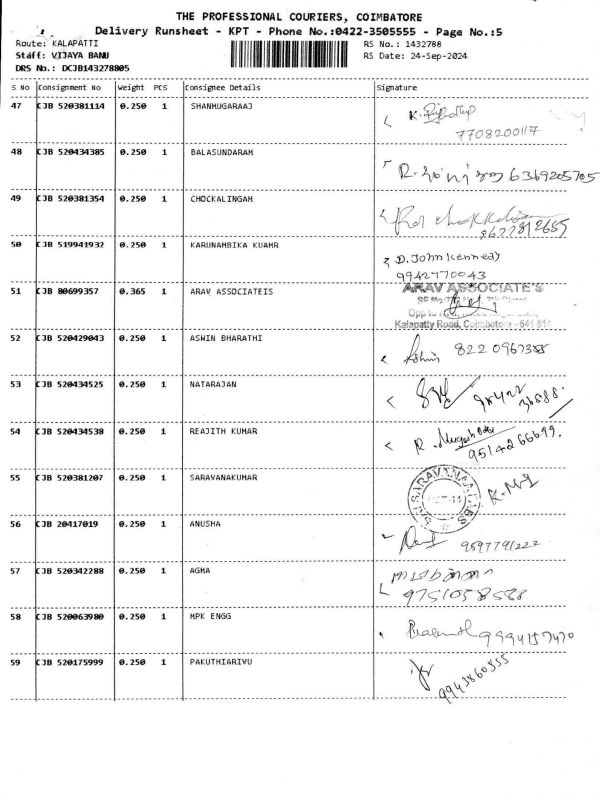 THE PROFESSIONAL COURIERS, COIMBATORE
Delivery Runsheet - KPT - Phone No.:0422-3505555 - Page No.:5
Route: KALAPATTI RS No.: 1432788
Staff: VIJAYA BANU RS Date: 24-Sep-2024
DRS No.: DCJB143278805
S No Consignment No Weight PCS Consignee Details Signature
47 CJB 520381114 0.250 1 SHANMUGARAAJ
7708200117
48 CJB 520434385 0.250 1 BALASUNDARAM
6369205705
49 CJB 520381354 0.250 1 CHOCKALINGAM
8677812685
50 CJB 519941932 0.250 1 KARUNAMBIKA KUAMR D. John Kennedy
9942770043
51 CJB 80699357 0.365 1 ARAV ASSOCIATEIS ARAV ASSOCIATE'S
Kalapatty Road, Coimbatore - 641
52 CJB 520429043 0.250 1 ASHIN BHARATHI Ashin
53 CJB 520434525 0.250 1 NATARAJAN
54 CJB 520434538 0.250 1 REAJITH KUMAR
9514266699.
55 CJB 520381207 0.250 1 SARAVANAKUMAR
56 CJB 20417019 0.250 1 ANUSHA
57 CJB 520342288 0.250 1 AGMA
58 CJB 520063980 0.250 1 MPK ENGG
59 CJB 520175999 0.250 1 PAKUTHIARIVU